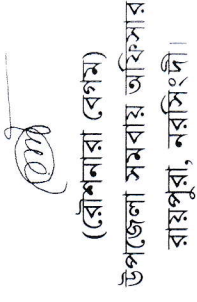 (রৌশনারা বেগম)
উপজেলা সমবায় অফিসার
রায়পুরা, নরসিংদী।